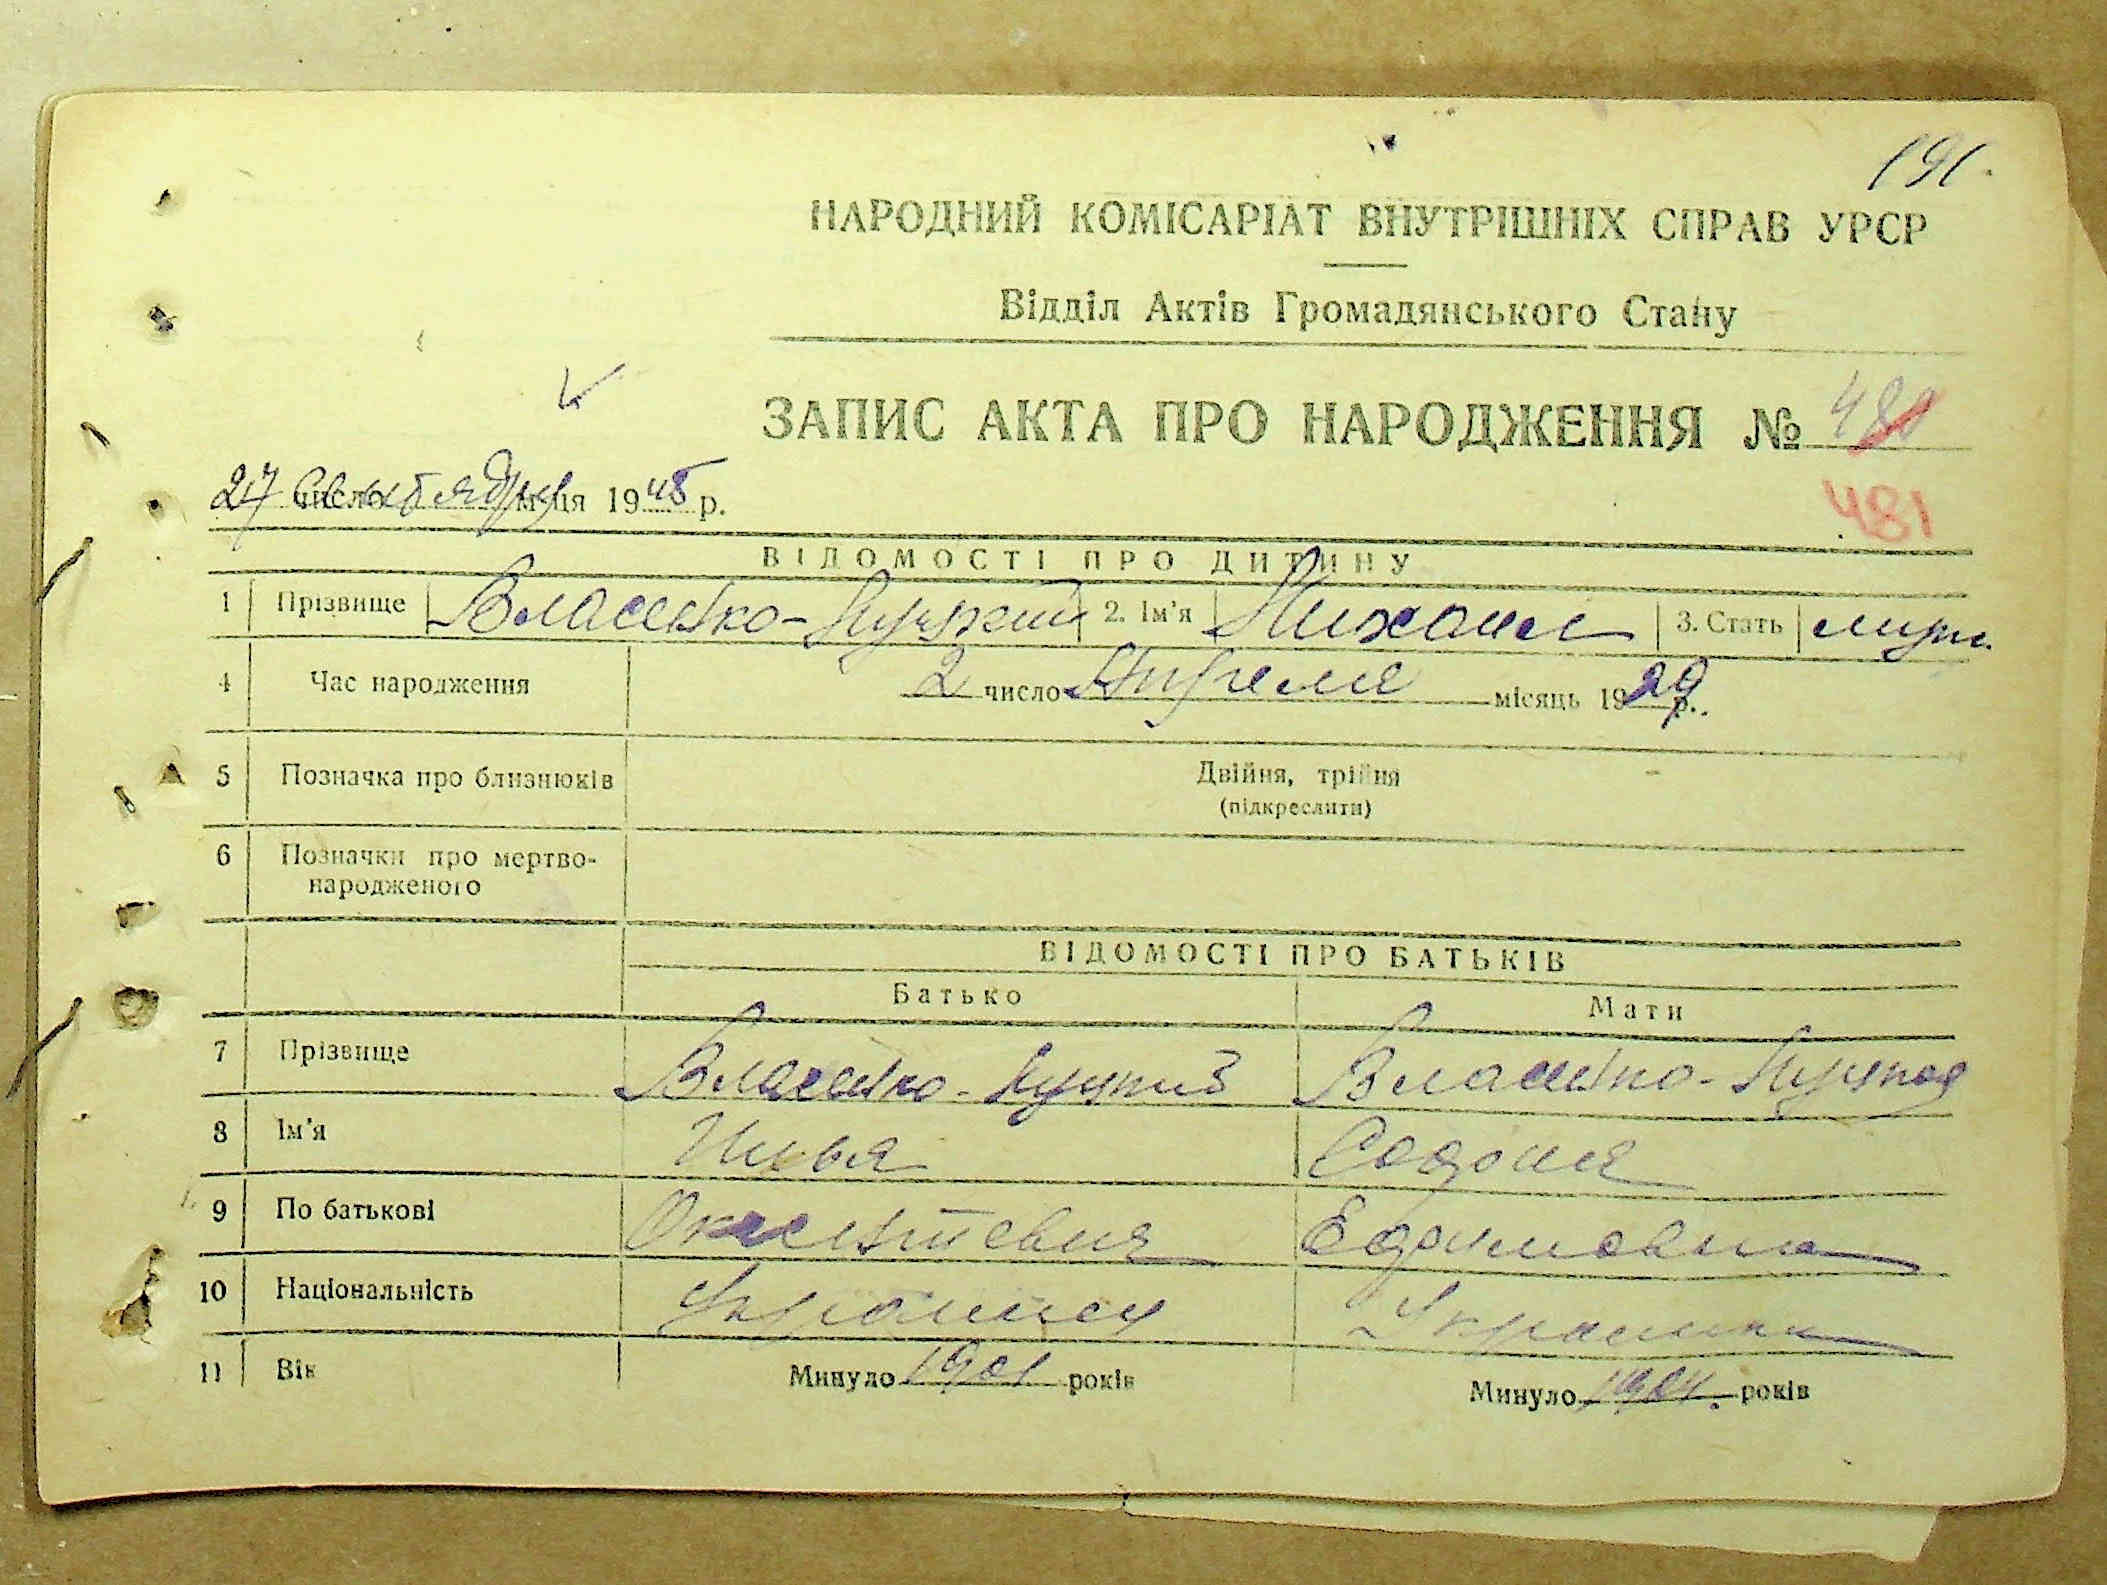 191.
НАРОДНИЙ КОМІСАРІАТ ВНУТРІШНІХ СПРАВ УРСР
Відділ Актів Громадянського Стану
ЗАПИС АКТА ПРО НАРОДЖЕННЯ № 480
481
27 число сентября м-ця 1945 р.
ВІДОМОСТІ ПРО ДИТИНУ
1 Прізвище Власенко- 2. Ім'я Михаил 3. Стать муж.
4 Час народження 2 число Апреля місяць 1929 р.
5 Позначка про близнюків Двійня, трійня
(підкреслити)
6 Позначки про мертво-
народженого
ВІДОМОСТІ ПРО БАТЬКІВ
Батько Мати
7 Прізвище Власенко- Власенко-
8 Ім'я Илья София
9 По батькові Ефимовна
10 Національність Украинец Украинка
11 Вік Минуло 1901 років Минуло 1904. років